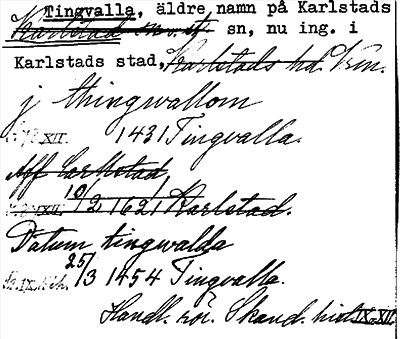 Tingvalla, äldre namn på Karlstads
Karlstad sn, nu ing. i
Karlstads stad, Karlstads hd. Vrm.
j thingwallom
XII. 1431 Tingvalla.
Aff Carlstad
10/2 1621 Karlstad.
Datum tingwalda
25/3 1454 Tingvalla.
Handl. rör. Skand. hist. IX-XII